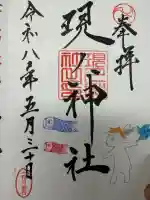 奉拝
現ノ神社
令和八年五月三十日